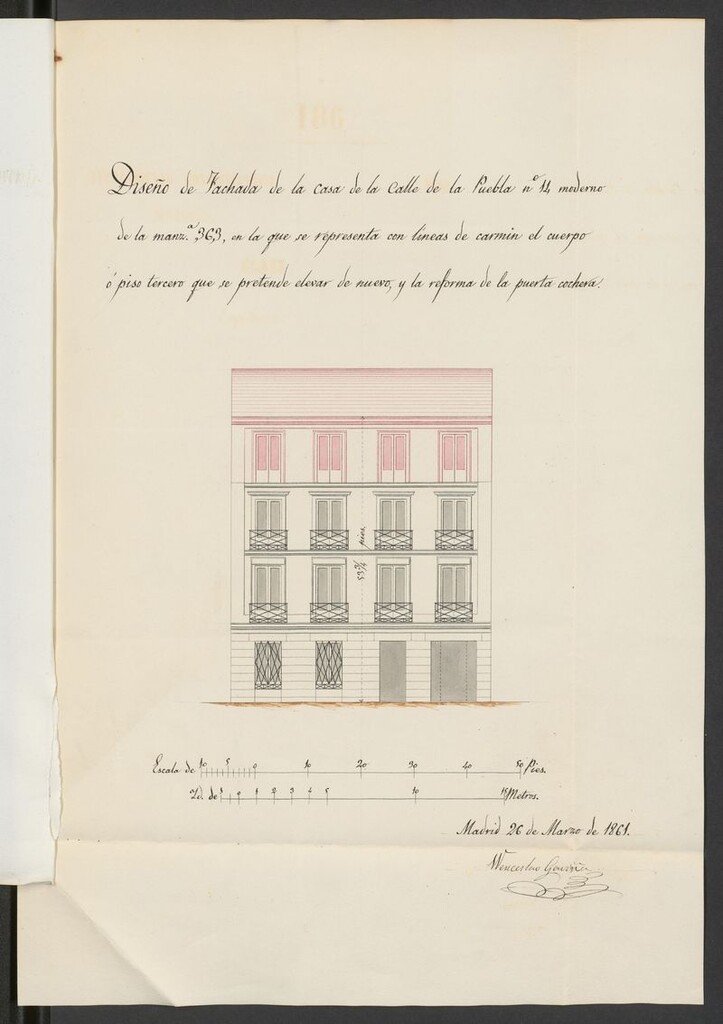 Diseño de Fachada de la casa de la Calle de la Puebla nº 14 moderno
de la manz.ª 363, en la que se representa con líneas de carmin el cuerpo
ó piso tercero que se pretende elevar de nuevo, y la reforma de la puerta cochera.
53 3/4 pies.
Escala de 10 5 0 10 20 30 40 50 Pies.
Id. de 1 0 1 2 3 4 5 10 15 Metros.
Madrid 26 de Marzo de 1861.
Wenceslao Gaviña